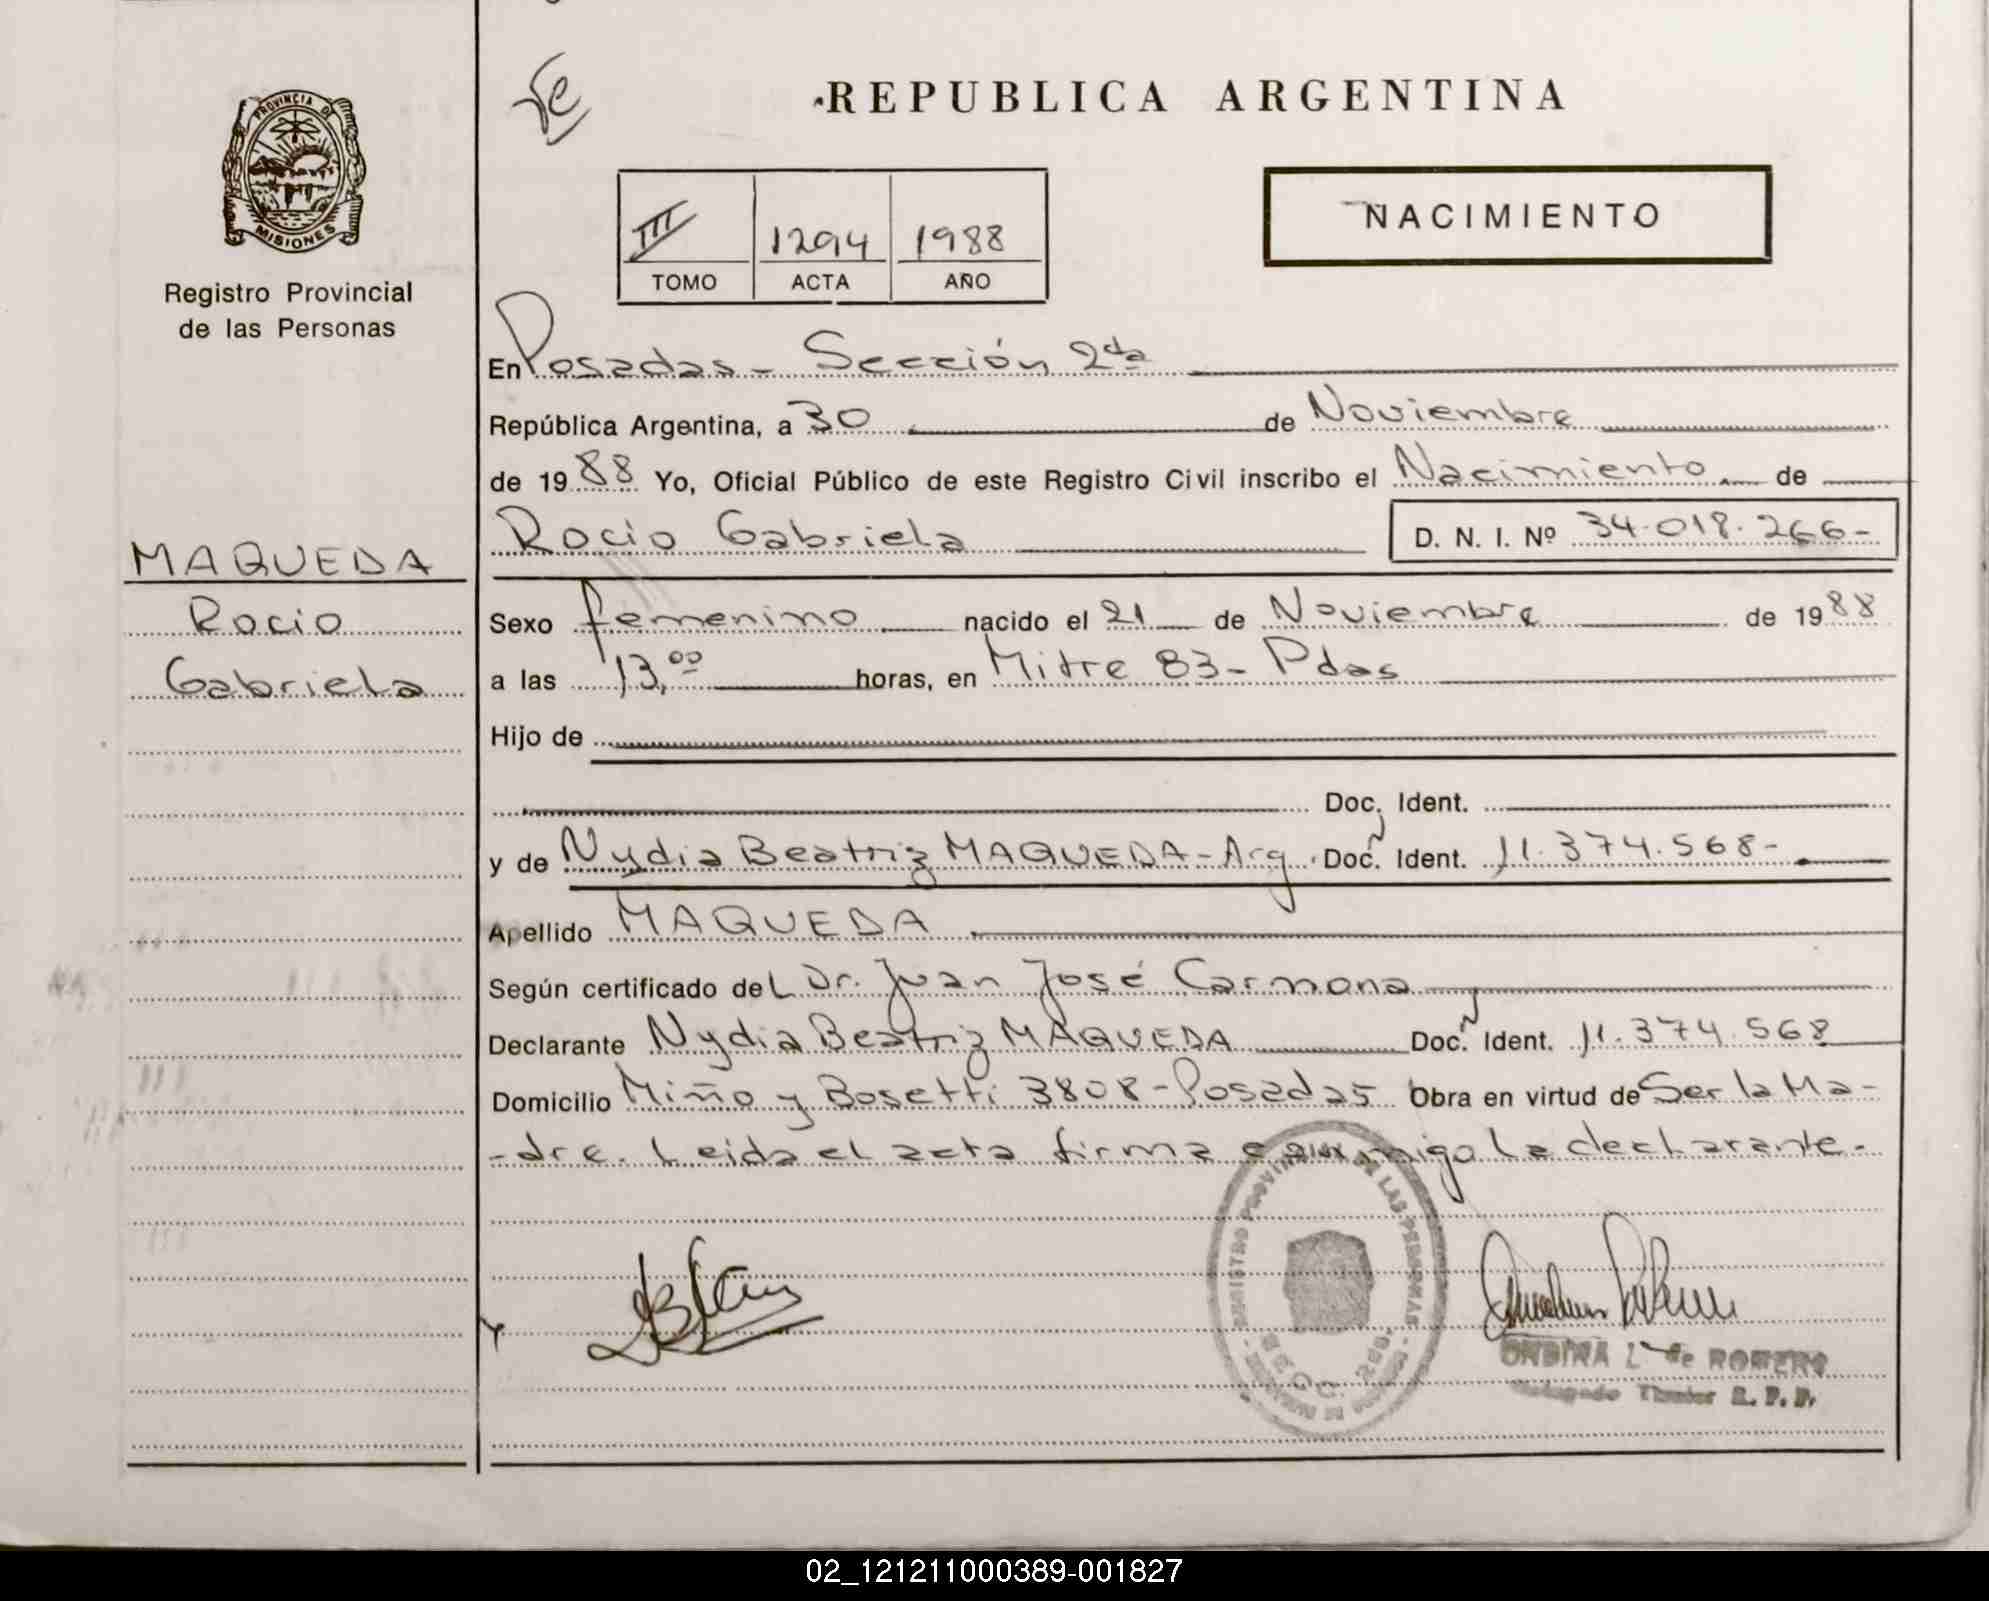 Fe
REPUBLICA ARGENTINA
PROVINCIA DE
MISIONES
Registro Provincial
de las Personas
III 1294 1988
TOMO ACTA AÑO
NACIMIENTO
En Posadas - Sección 2da
República Argentina, a 30 de Noviembre
de 1988 Yo, Oficial Público de este Registro Civil inscribo el Nacimiento de
Rocio Gabriela D. N. I. Nº 34.018.266-
MAQUEDA
Rocio
Gabriela
Sexo femenino nacido el 21 de Noviembre de 1988
a las 13,00 horas, en Mitre 83- Pdas
Hijo de
Doc. Ident.
y de Nydia Beatriz MAQUEDA - Arg. Doc. Ident. 11.374.568-
Apellido MAQUEDA
Según certificado del Dr. Juan José Carmona
Declarante Nydia Beatriz MAQUEDA Doc. Ident. 11.374.568
Domicilio Miño y Bosetti 3808 - Posadas Obra en virtud de Ser la Ma-
-dre. Leida el acta firma conmigo la declarante.
REGISTRO PROVINCIAL DE LAS PERSONAS
SECC. 2da.
ONDINA L. de ROMERO
Delegado Titular R. P. P.
02_121211000389-001827